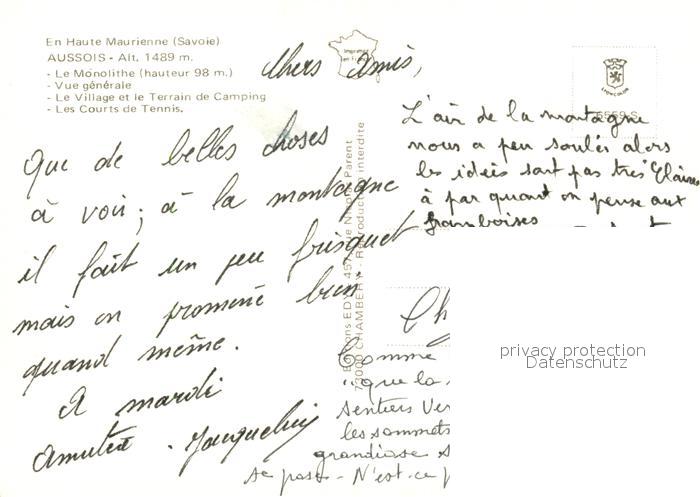 En Haute Maurienne (Savoie)
AUSSOIS - Alt. 1489 m.
- Le Monolithe (hauteur 98 m.)
- Vue générale
- Le Village et le Terrain de Camping
- Les Courts de Tennis.
Imprimé en France
Chers Amis,
Que de belles choses
à voir ; à la montagne
il fait un peu frisquet
mais on promène bien
quand même.
A mardi
Amitiés . Jacqueline
Editions EDY - 457, rue Nicolas Parent
73000 CHAMBERY - Reproduction interdite
L'air de la montagne
nous a peu soulés alors
les idées sont pas très claires
à par quant on pense aux
framboises
Comme
"que la
sentiers ver
les sommets
grandiose s
se passe - N'est-ce p
privacy protection
Datenschutz